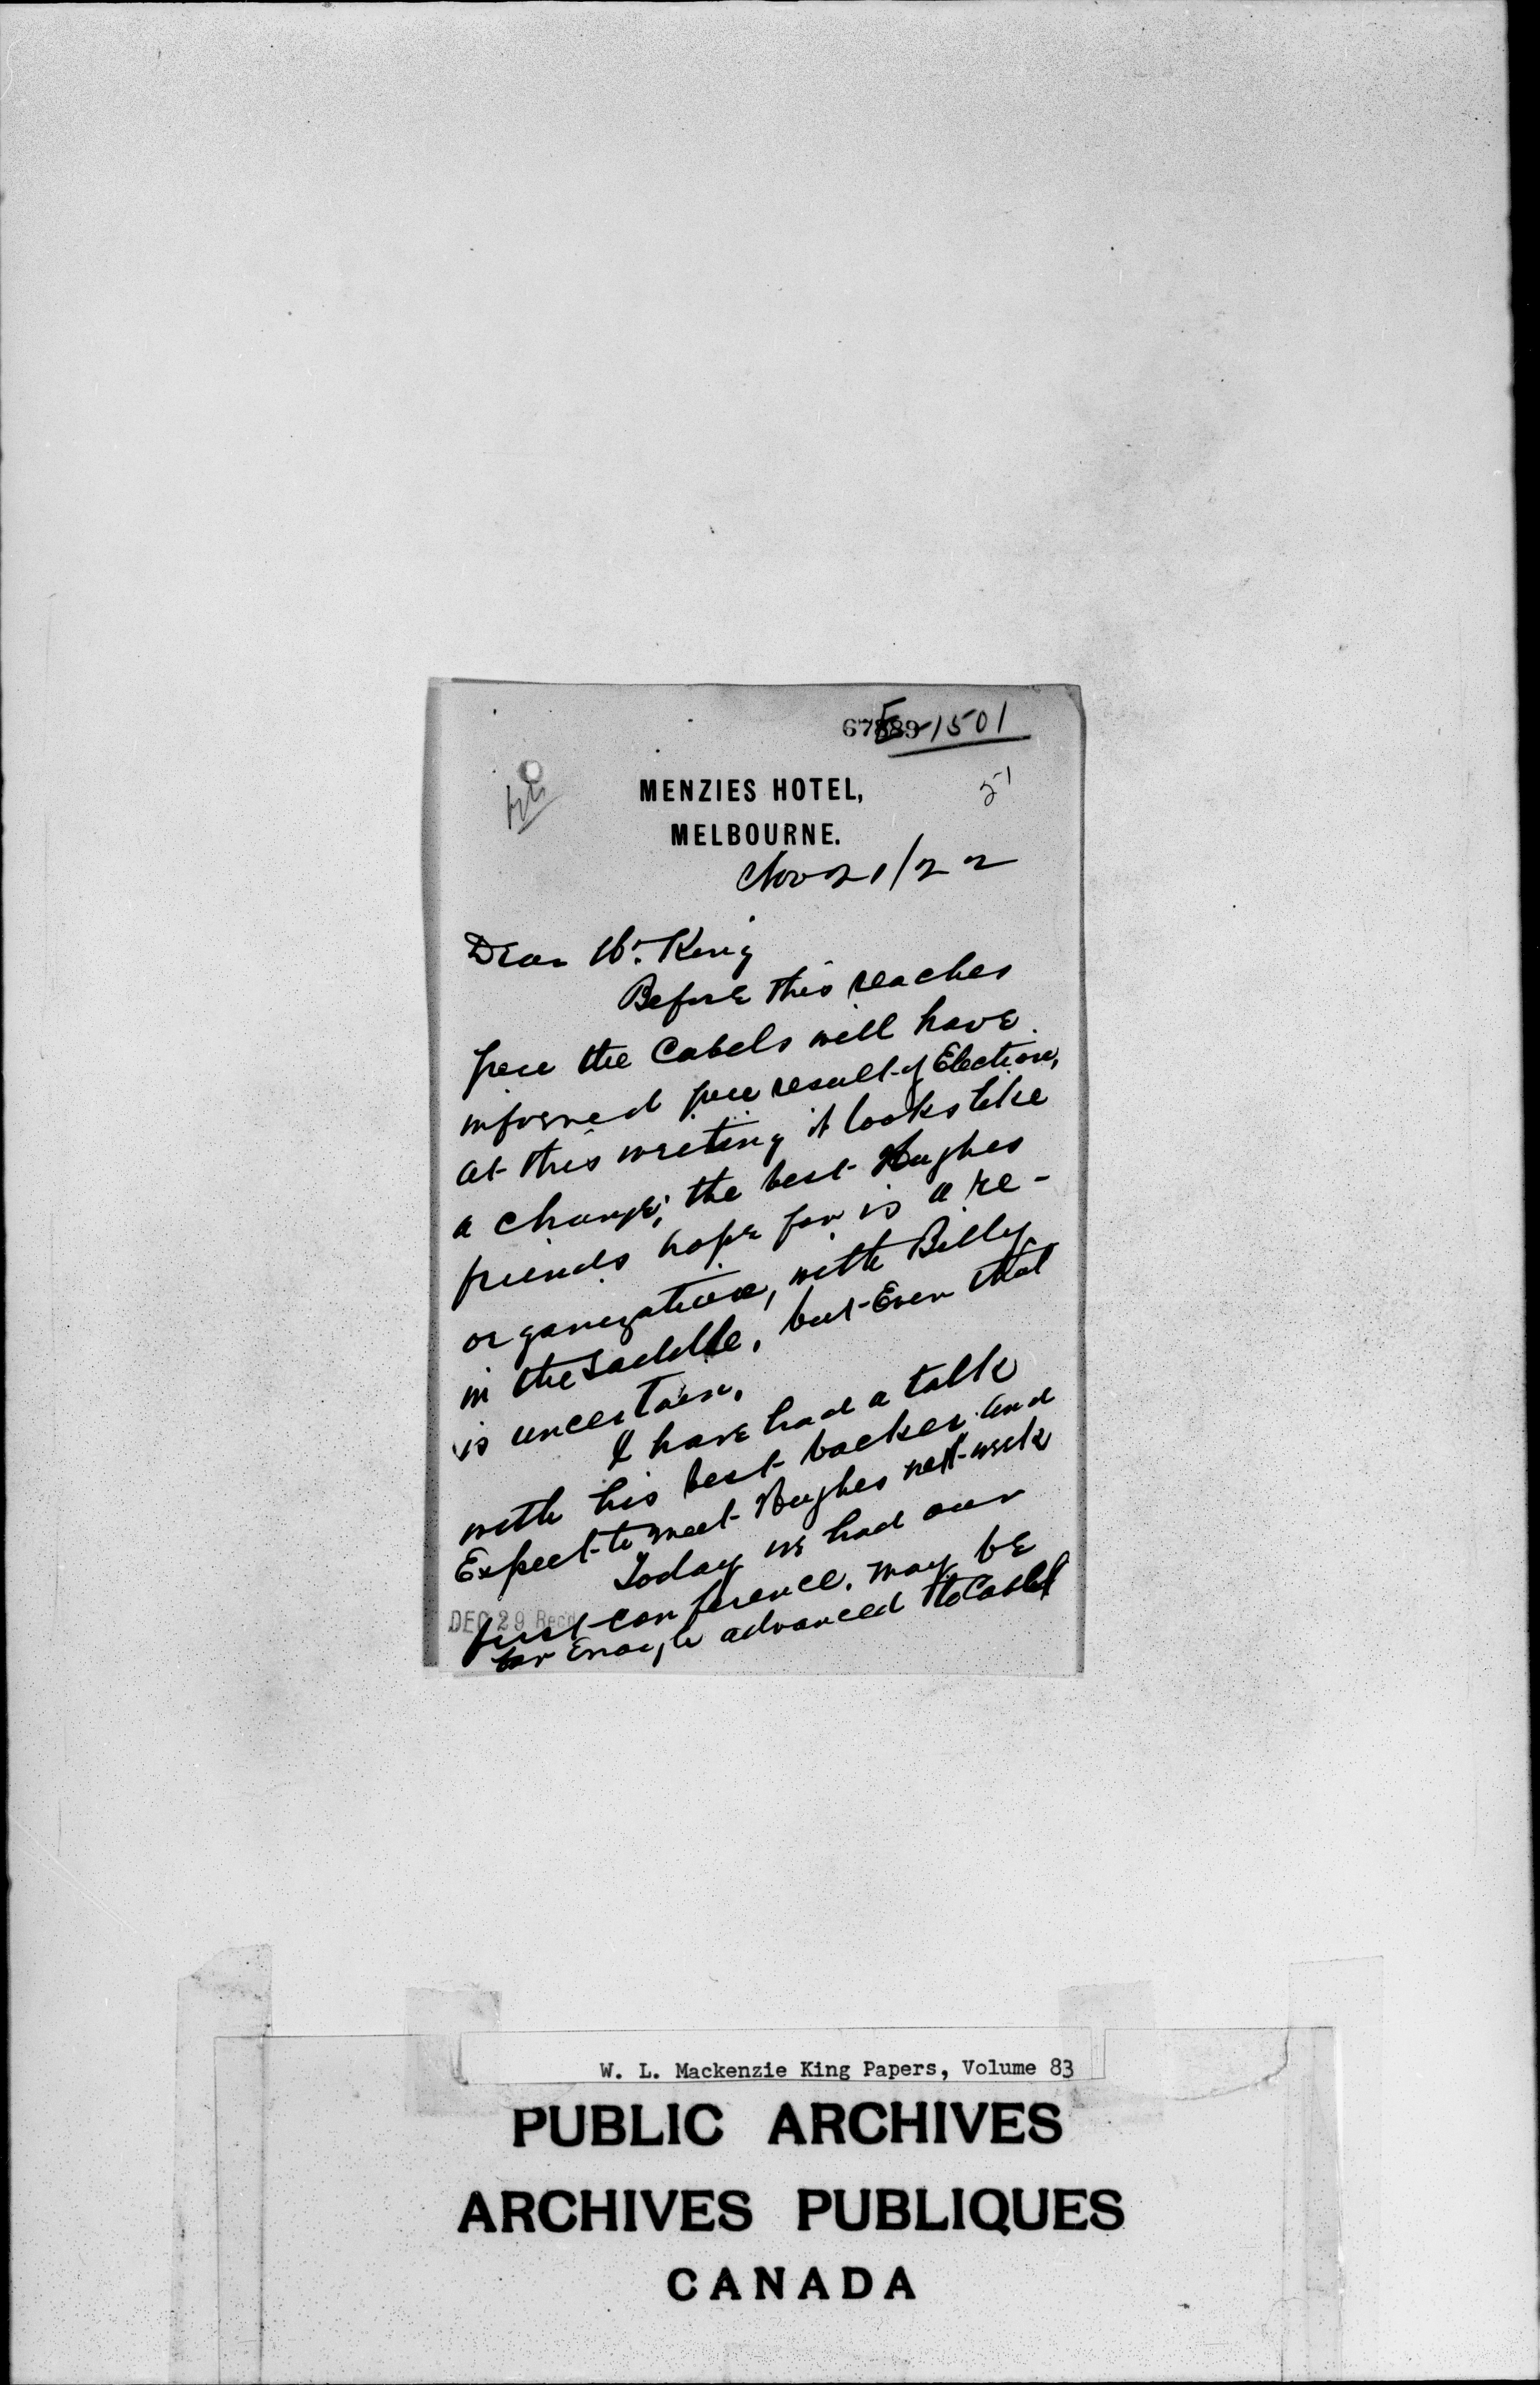 67889
E-1501
51
MENZIES HOTEL,
MELBOURNE.
Nov 21/22
Dear Mr. King
Before this reaches
you the Cabels will have
informed you result of Election,
at this writing it looks like
a change, the best Hughes
friends hope for is a re-
organization, with Billy
in the saddle, but Even that
is uncertain.
I have had a talk
with his best backer and
Expect to meet Hughes next week
Today we had our
first conference. may be
far Enough advanced to Cabel
DEC 29 Recd
W. L. Mackenzie King Papers, Volume 83
PUBLIC ARCHIVES
ARCHIVES PUBLIQUES
CANADA